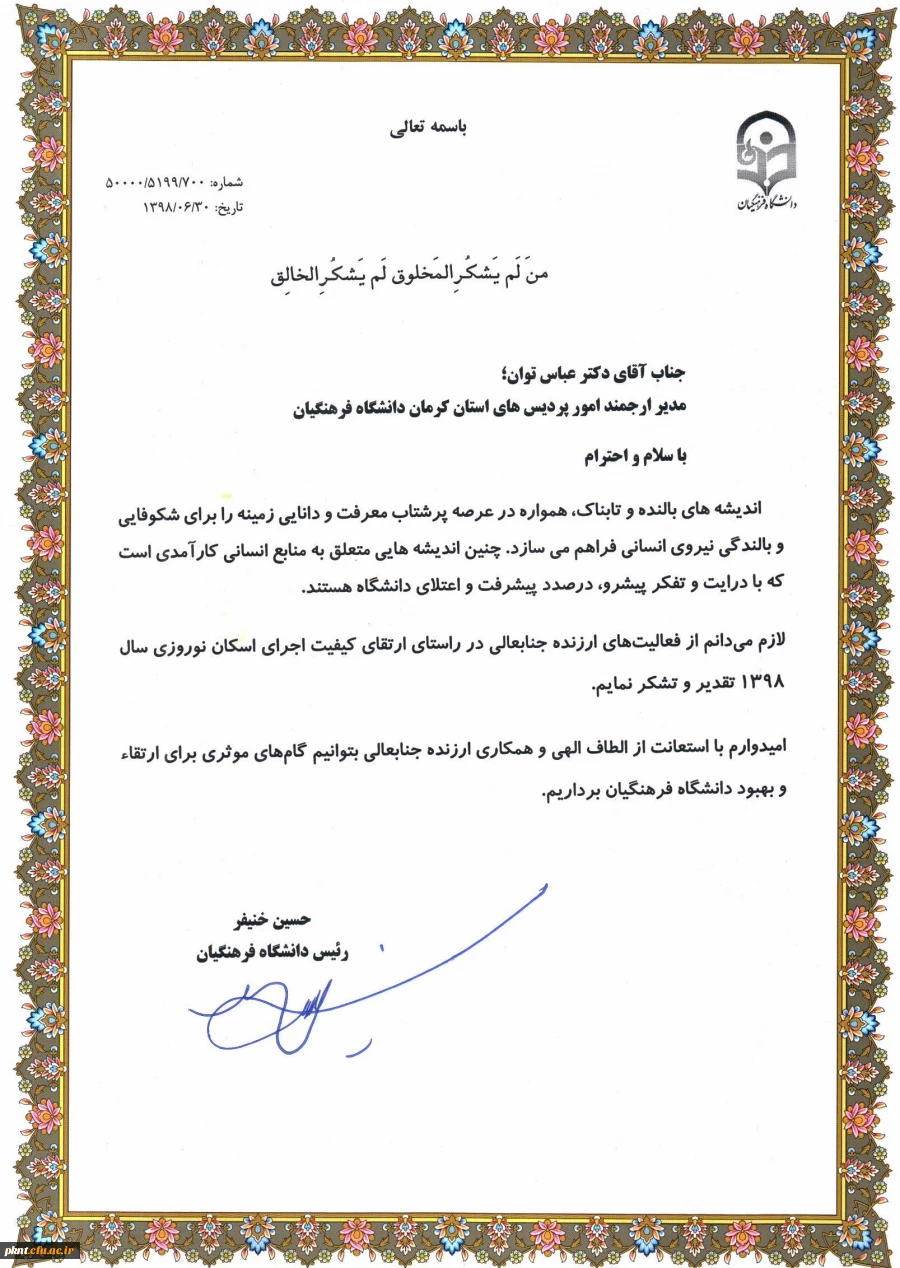 باسمه تعالی
دانشگاه فرهنگیان
شماره: ۵۰۰۰۰/۵۱۹۹/۷۰۰
تاریخ: ۱۳۹۸/۰۶/۳۰
منَ لَم یَشکُرِالمَخلوق لَم یَشکُرِالخالِق
جناب آقای دکتر عباس توان؛
مدیر ارجمند امور پردیس های استان کرمان دانشگاه فرهنگیان
با سلام و احترام
اندیشه های بالنده و تابناک، همواره در عرصه پرشتاب معرفت و دانایی زمینه را برای شکوفایی
و بالندگی نیروی انسانی فراهم می سازد. چنین اندیشه هایی متعلق به منابع انسانی کارآمدی است
که با درایت و تفکر پیشرو، درصدد پیشرفت و اعتلای دانشگاه هستند.
لازم می‌دانم از فعالیت‌های ارزنده جنابعالی در راستای ارتقای کیفیت اجرای اسکان نوروزی سال
۱۳۹۸ تقدیر و تشکر نمایم.
امیدوارم با استعانت از الطاف الهی و همکاری ارزنده جنابعالی بتوانیم گام‌های موثری برای ارتقاء
و بهبود دانشگاه فرهنگیان برداریم.
حسین خنیفر
رئیس دانشگاه فرهنگیان
pknt.cfu.ac.ir